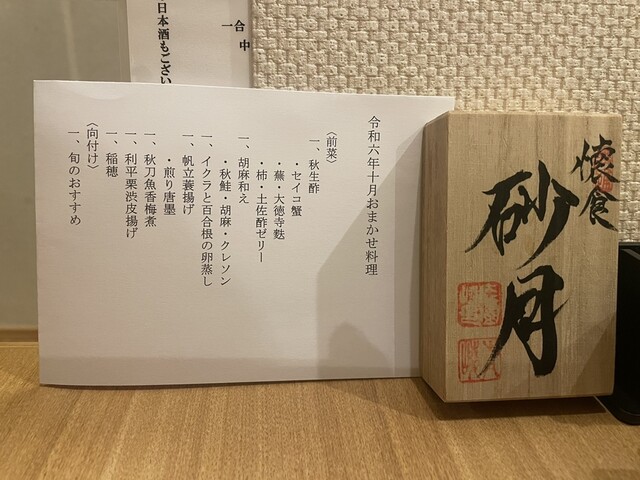 日本酒もござい
一合
中
令和六年十月おまかせ料理
〈前菜〉
一、秋生酢
・セイコ蟹
・蕪・大徳寺麩
・柿・土佐酢ゼリー
一、胡麻和え
・秋鮭・胡麻・クレソン
一、イクラと百合根の卵蒸し
一、帆立蓑揚げ
・煎り唐墨
一、秋刀魚香梅煮
一、利平栗渋皮揚げ
一、稲穂
〈向付け〉
一、旬のおすすめ
懐食
砂月